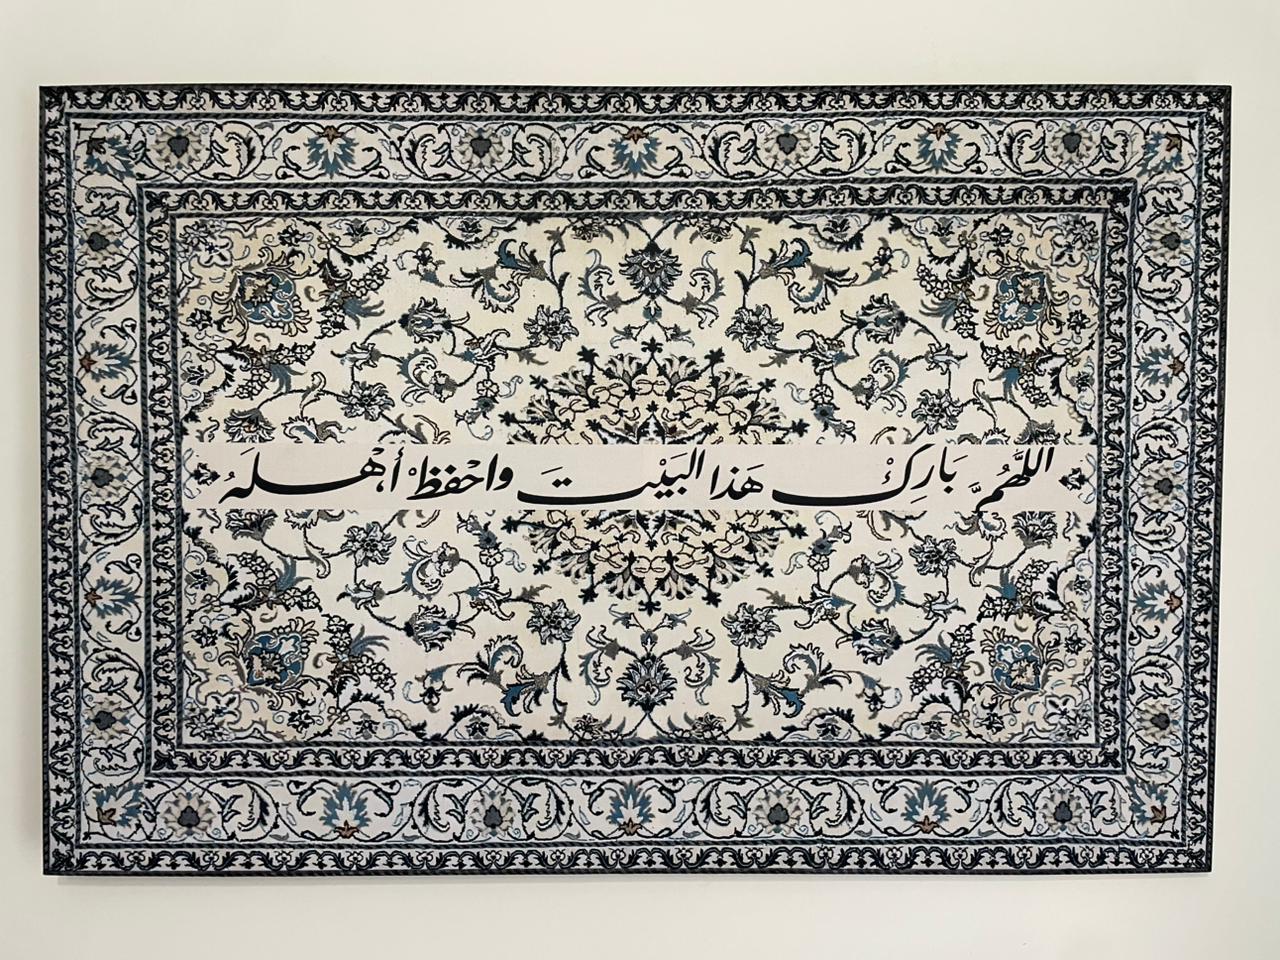 اللَّهُمَّ بَارِكْ هَذا البَيْتَ واحْفَظْ أَهْلَهُ